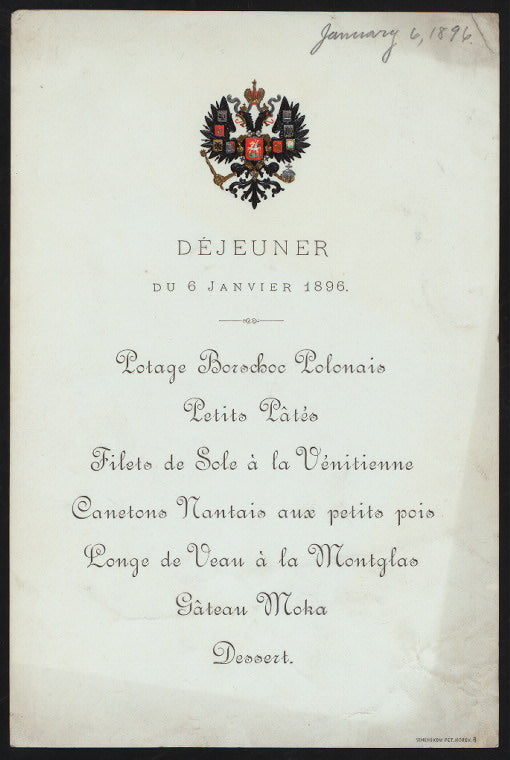 January 6, 1896.
DÉJEUNER
DU 6 JANVIER 1896.
Potage Borschoc Polonais
Petits Pâtés
Filets de Sole à la Vénitienne
Canetons Nantais aux petits pois
Longe de Veau à la Montglas
Gâteau Moka
Dessert.